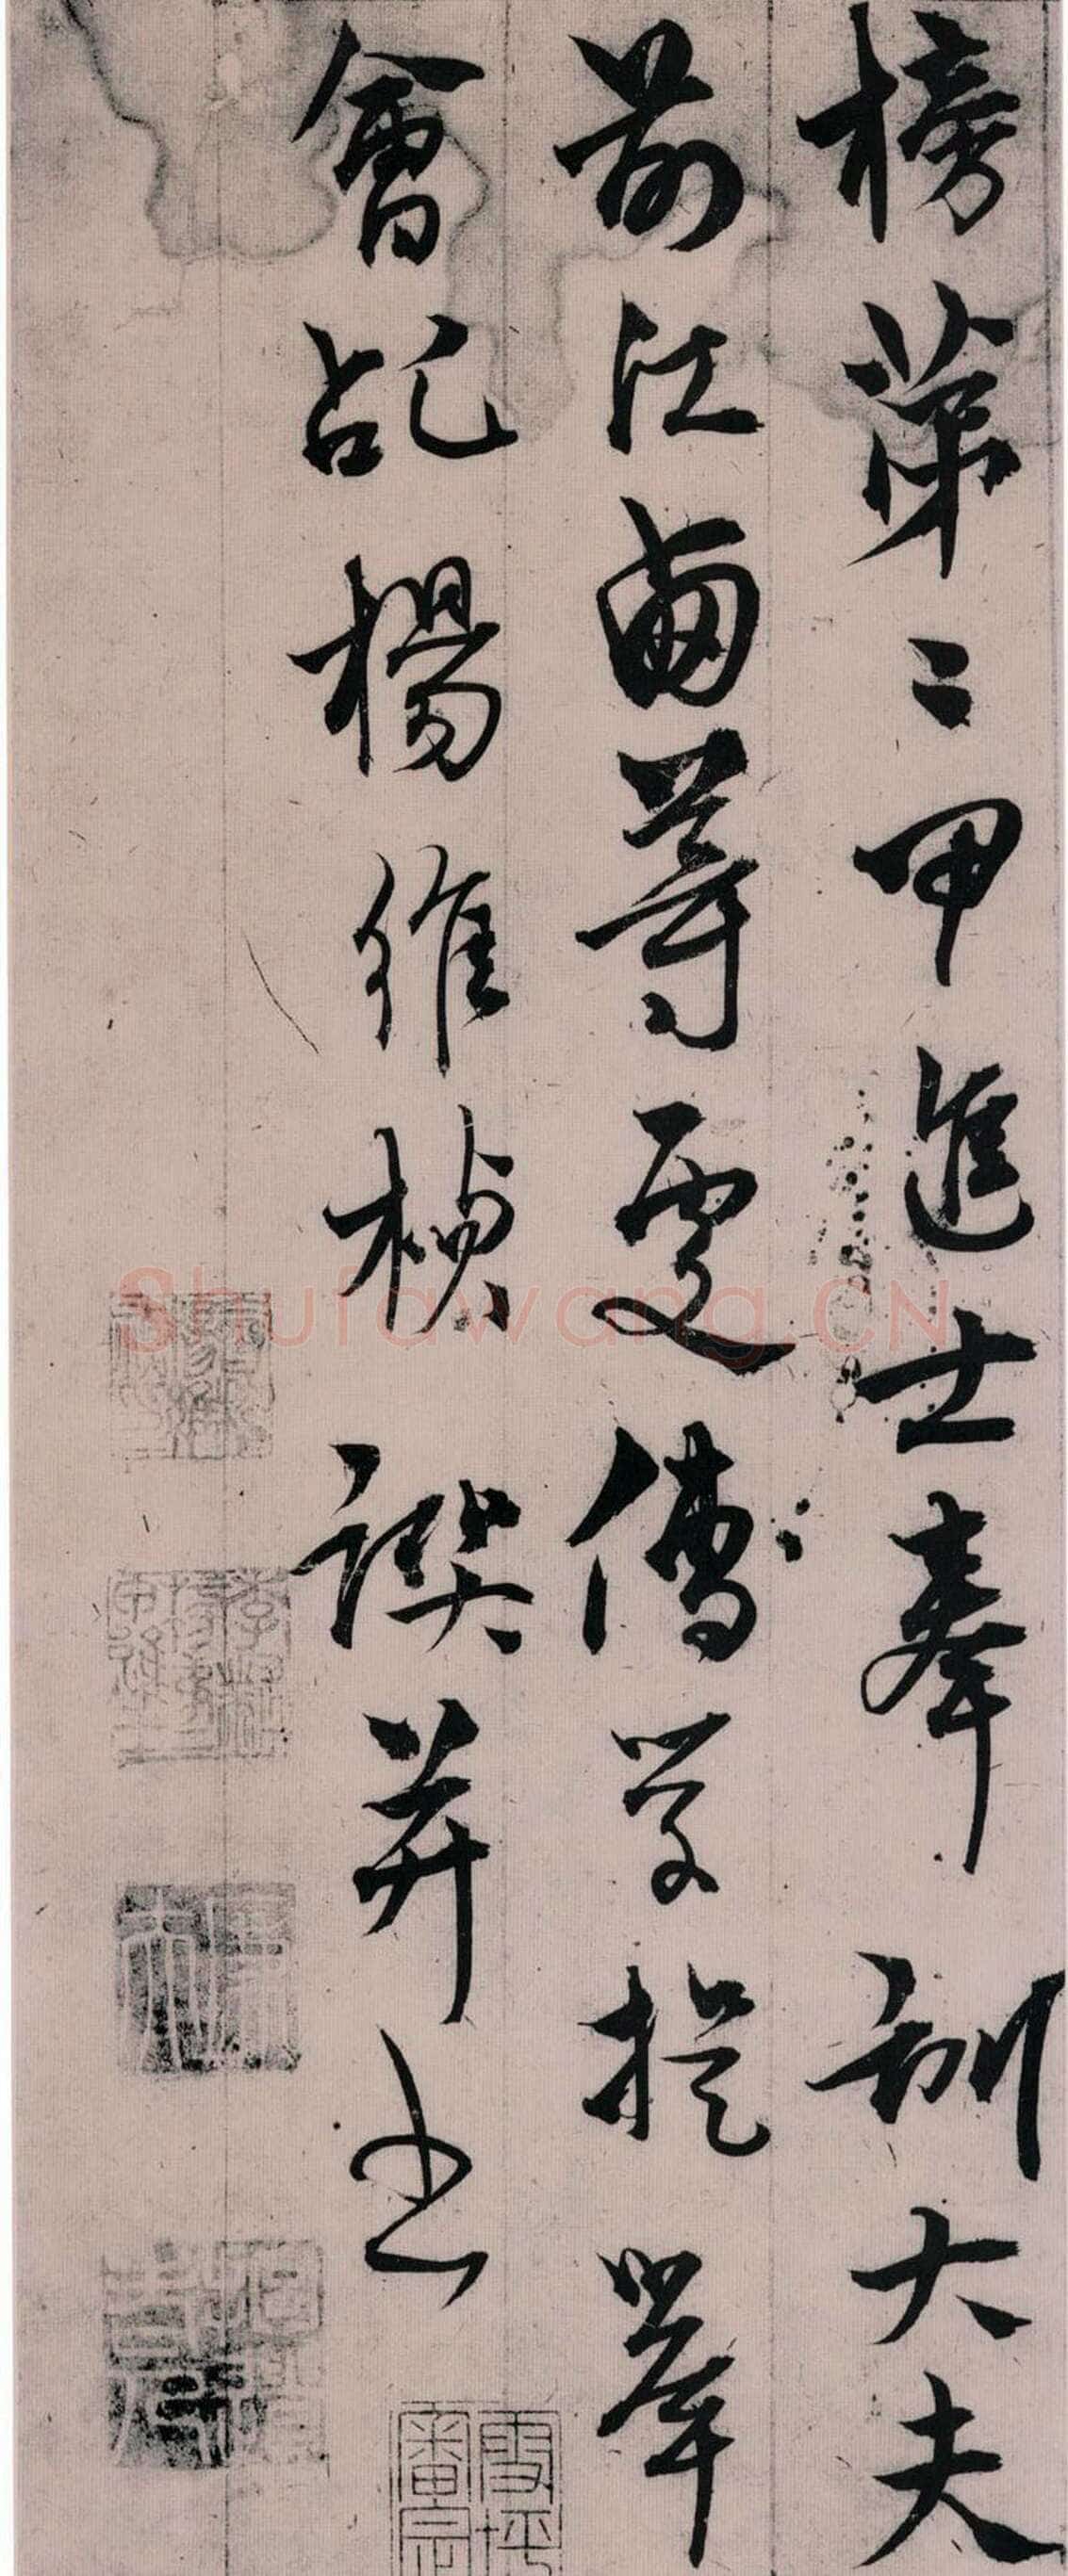 榜第二甲進士奉 訓大夫
前江西等處儒學提舉
會稽楊維楨譔并書
Shufawang.CN